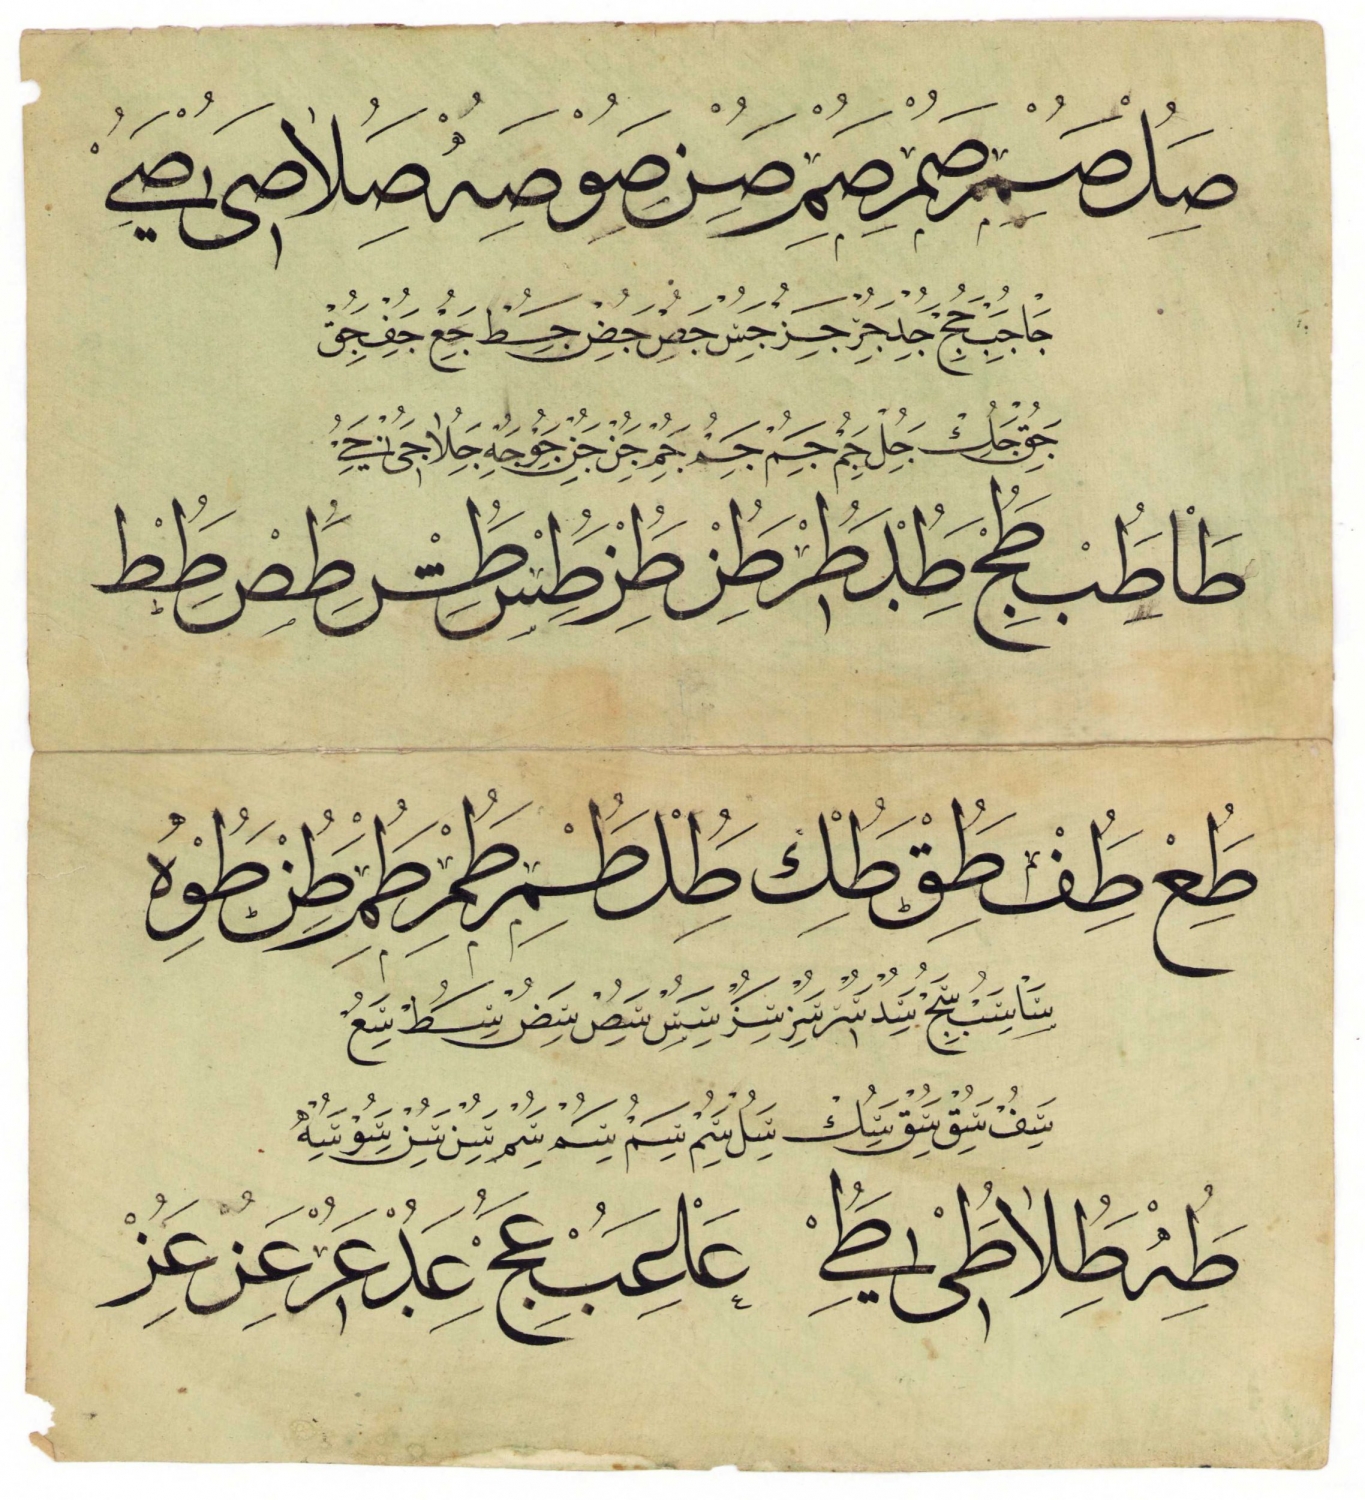 صل صم صم صم صن صو صه صلا صى صے
جا جب جج جد جر جز جس جص جض جط جع جف جق
جق جك جل جم جم جم جم جن جن جو جه جلا جى جے
طا طب طج طد طر طن طز طس طش طص طط
طع طف طق طك طل طم طم طم طن طو ه
سا سب سج سد سر سز سز سس سص سض سط سع
سف سق سق سك سل سم سم سم سم سن سن سو سه
طه طلا طى طے عا عب عج عد عر عن عز